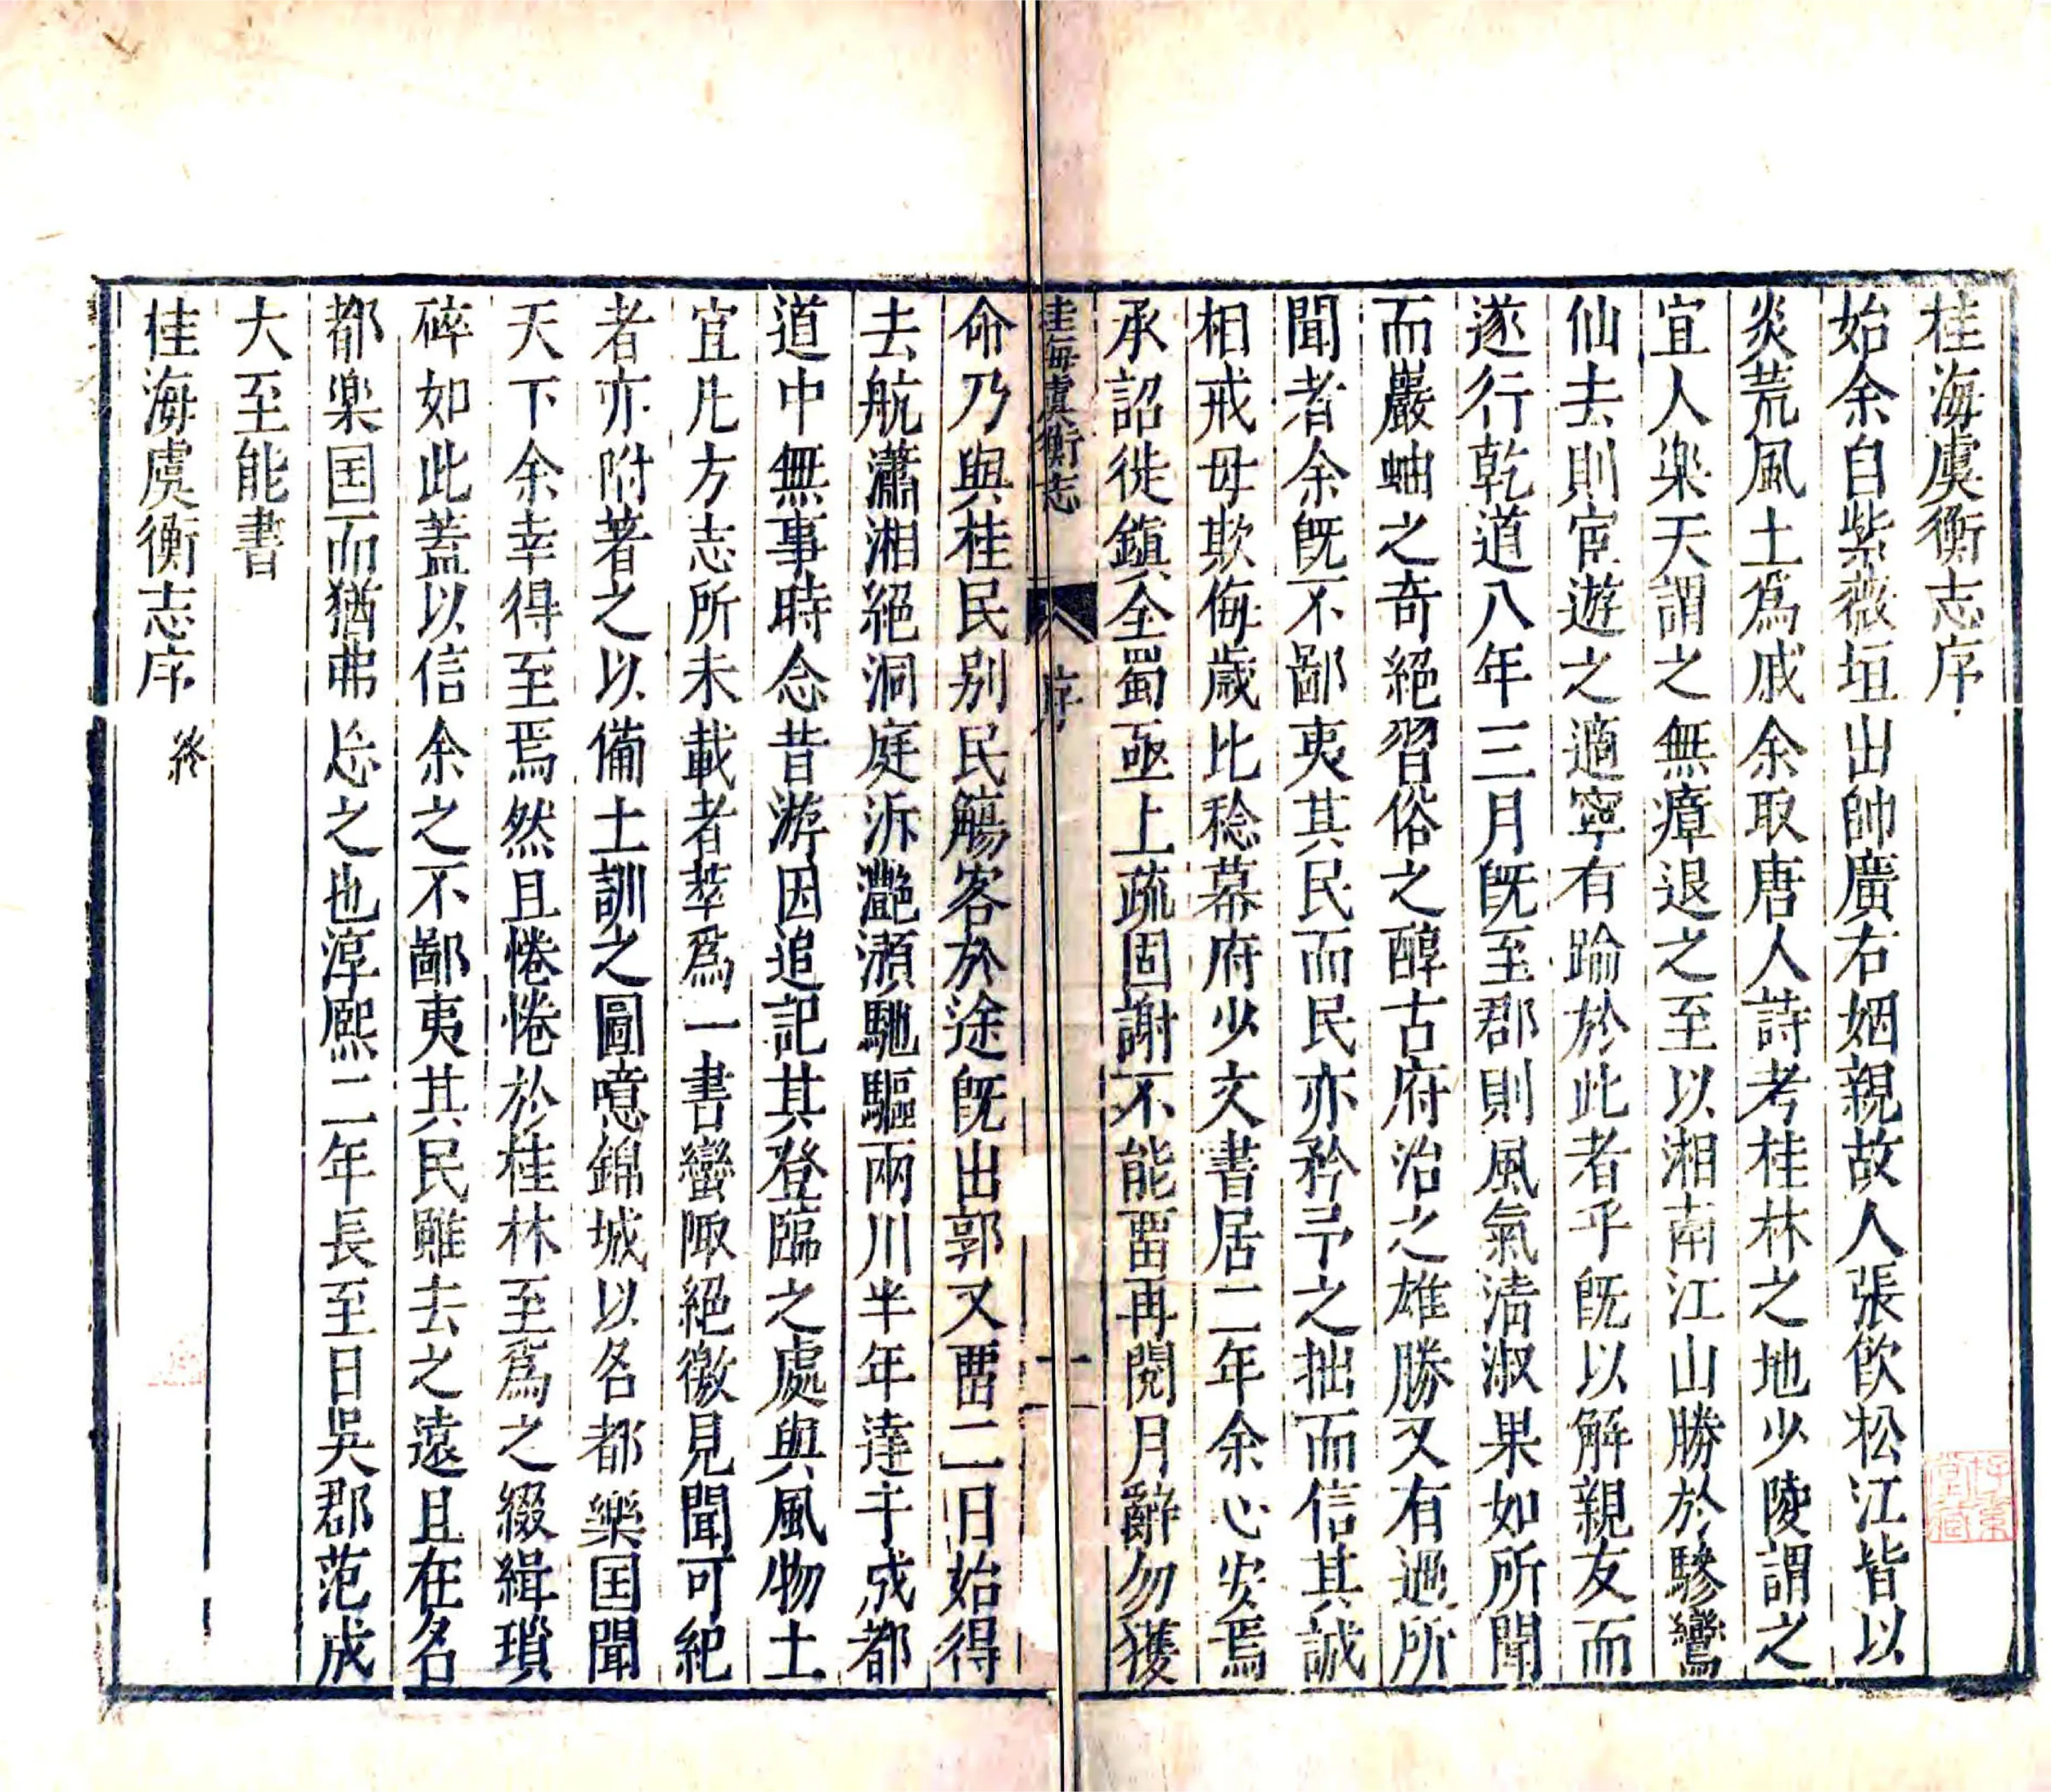 桂海虞衡志序
始余自紫薇垣出帥廣右姻親故人張飲松江皆以
炎荒風土爲戚余取唐人詩考桂林之地少陵謂之
宜人楽天謂之無瘴退之至以湘南江山勝於驂鸞
仙去則宦遊之適寧有踰於此者乎旣以解親友而
遂行乾道八年三月旣至郡則風氣清淑果如所聞
而巖岫之奇絕習俗之醇古府治之雄勝又有過所
聞者余旣不鄙夷其民而民亦矜予之拙而信其誠
相戒毋欺侮歲比稔幕府少文書居二年余心安焉
承詔徙鎮全蜀亟上疏固謝不能畱再閱月辭勿獲
桂海虞衡志 序 一
命乃與桂民别民觴客於途旣出郭又畱二日始得
去航瀟湘絕洞庭泝灩澦馳驅兩川半年達于成都
道中無事時念昔游因追記其登臨之處與風物土
宜凡方志所未載者萃爲一書蠻陬絕徼見聞可紀
者亦附著之以備土訓之圖噫錦城以名都樂国聞
天下余幸得至焉然且惓惓於桂林至爲之綴緝瑣
碎如此蓋以信余之不鄙夷其民雖去之遠且在名
都楽国而猶弗忘之也淳熙二年長至日吳郡范成
大至能書
桂海虞衡志序 终